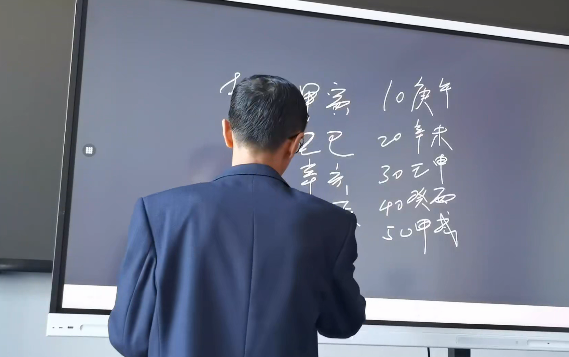 甲寅 10庚午
己巳 20辛未
辛亥 30壬申
40癸酉
50甲戌